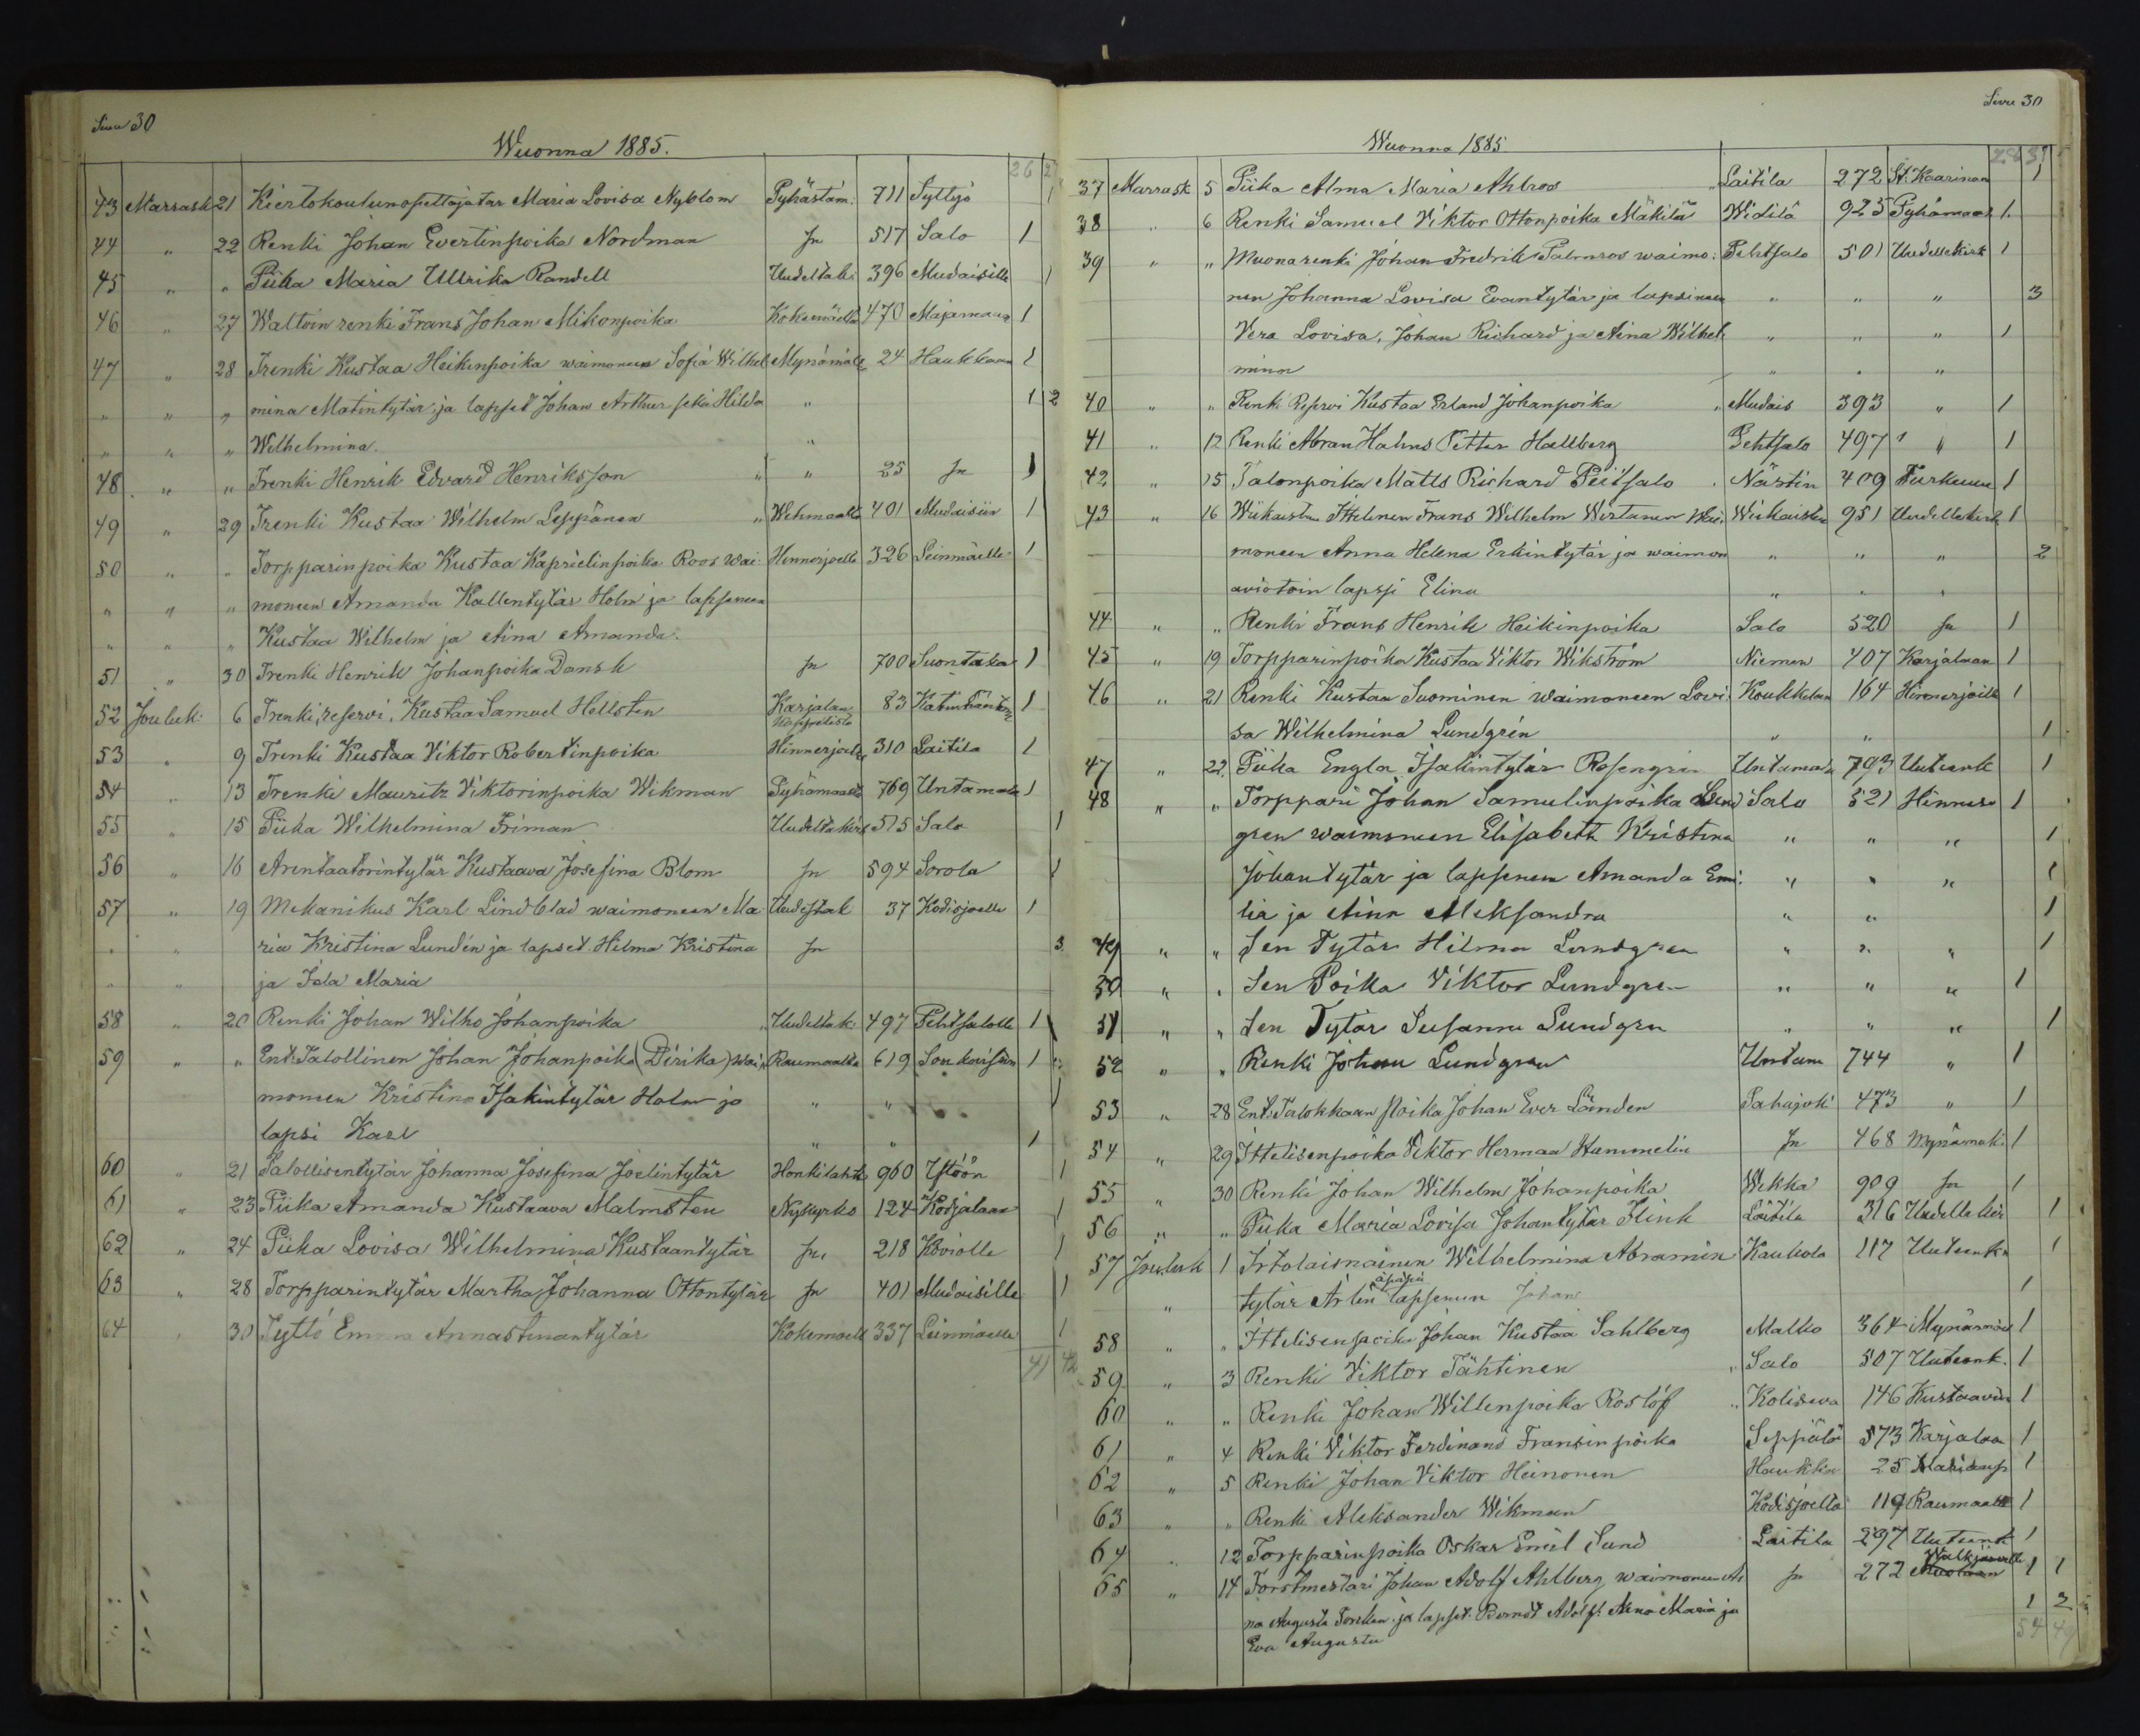 Sivu 30
Wuonna 1885.
26 2
43 Marrask 21 Kiertokoulunopettajatar Maria Lovisa Nyblom Pyhästäm. 711 Syttyö 1
44 " 22 Renki Johan Evertinpoika Nordman Jn 517 Salo 1
45 " " Piika Maria Ullrika Randell Uudeltaki 396 Mudaisille 1
46 " 27 Waltoin renki Frans Johan Mikonpoika Kokemäeltä 470 1
47 " 28 Trenki Kustaa Heikinpoika waimoneen Sofia Wilhel Mynämäle 24 Haukkaan 1
" " " mina Matintytär ja lapset Johan Arthur sekä Hilda " 1 2
" " " Wilhelmina. "
48 " " Trenki Henrik Edvard Henriksson " " 25 Jn 1
49 " 29 Trenki Kustaa Wilhelm Leppänen " Wehmaalta 401 Mudaisiin 1
50 " " Torpparinpoika Kustaa Kaprielinpoika Roos wai Hinnerjoelta 326 Leinmäelle 1
" " " moneen Amanda Kallentytär Holm ja lapseneen
" " " Kustaa Wilhelm ja Aina Amanda.
51 " 30 Trenki Henrik Johanpoika Dansk Jn 700 Suontaka 1
52 Jouluk: 6 Trenki, reservi, Kustaa Samuel Hellsten Karjalan Kappelista 83 1
53 " 9 Trenki Kustaa Viktor Robertinpoika Hinnerjoelta 310 Laitila 1
54 " 13 Trenki Mauritz Viktorinpoika Wikman Pyhämaasta 769 Untamala 1
55 " 15 Piika Wilhelmina Friman Uudeltakirk 515 Salo 1
56 " 16 Arentaatorintytär Kustaava Josefina Blom Jn 594 Sorola 1
57 " 19 Mekanikus Karl Lindblad waimoneen Ma Uudestak 37 Kodisjoelle 1
" " ria Kristina Lundén ja lapset Hilma Kristina Jn 3
" " ja Ida Maria
58 " 20 Renki Johan Wilho Johanpoika " Uudeltak: 497 Pehtsalolle 1
59 " " Ent. Talollinen Johan Johanpoika (Dirika) wai Raumaalta 619 Soukaisiin 1
moneen Kristina Isakintytär Holm ja " " 1
lapsi Karl " " 1
60 " 21 Talollisentytär Johanna Josefina Joelintytär Honkilahti 960 Ystöön 1
61 " 23 Piika Amanda Kustaava Malmsten Nykyrko 124 Kodjalaan 1
62 " 24 Piika Lovisa Wilhelmina Kustaantytär Jn. 218 Koviolle 1
63 " 28 Torpparintytär Martha Johanna Ottontytär Jn 401 Mudaisille 1
64 " 30 Tyttö Emma Annastinantytär Kokemaelt 337 Leinmäelle 1
41 42
Sivu 30
Wuonna 1885
28 31
37 Marrask 5 Piika Alma Maria Ahlroos " Laitila 272 St. Kaarinaan 1
38 " 6 Renki Samuel Viktor Ottonpoika Mäkilä Widilä 925 Pyhämaah 1
39 " " Muonarenki Johan Fredrik Palmroos waimo: Pehtsalo 501 Uudellekirk 1
nen Johanna Lovisa Evantytär ja lapsineen " " " 3
Vera Lovisa, Johan Richard ja Aina Wilhel " " " 1
mina " " "
40 " " Renki Reservi Kustaa Erland Johanpoika " Mudais 393 " 1
41 " 12 Renki Abran Hahns Petter Hallberg Pehtsalo 497 " 1
42 " 15 Talonpoika Matts Richard Peitsalo Närtin 409 Turkuun 1
43 " 16 Itellinen Frans Wilhelm Wirtanen Wai 951 Uudellekirk 1
moneen Anna Helena Erkintytär ja waimon " " " 2
aviotoin lapsi Elina " " "
44 " " Renki Frans Henrik Heikinpoika Salo 520 Jn 1
45 " 19 Torpparinpoika Kustaa Viktor Wikström Niemen 407 Karjalaan 1
46 " 21 Renki Kustaa Suominen waimoneen Lovi: 164 Hinnerjoelle 1
sa Wilhelmina Lundgrén " " 1
47 " 22 Piika Engla Isakintytär Rosengren Untamala 793 Uuteenk 1
48 " " Torppari Johan Samulinpoika Lund Salo 521 Hinner 1
gren waimoneen Elisabeth Kristina " " " 1
Johantytär ja lapsenen Amanda Emi: " " " 1
lia ja Aina Aleksandra " " 1
49 " " Sen Tytär Hilma Lundgren " " " 1
50 " " Sen Poika Viktor Lundgren " " " 1
51 " " Sen Tytär Susanna Lundgrn " " " 1
52 " " Renki Johan Lundgren Untam 744 " 1
53 " 28 Ent. Talokkaan poika Johan Ever Lindén Pahojoki 473 " 1
54 " 29 Ittelisenpoika Viktor Herman Hammelin Jn 468 Mynämäki 1
55 " 30 Renki Johan Wilhelm Johanpoika Wekka 909 Jn 1
56 " " Piika Maria Lovisa Johantytär Flink Laitila 316 Uudelle kir 1
57 Jouluk 1 Irtolaisnainen Wilhelmina Abramin Kaukola 117 Uuteenk 1
" tytär Arlin äpärä lapsenen Johan 1
58 " " Ittelisenpoika Johan Kustaa Sahlberg Malko 364 Mynämäe 1
59 " 3 Renki Viktor Tähtinen " Salo 507 Uuteenk. 1
60 " " Renki Johan Willenpoika Roslöf " Koliseva 146 Kustaaviin 1
61 " 4 Renki Viktor Ferdinand Fransinpoika Seppälä 573 Karjalaa 1
62 " 5 Renki Johan Viktor Heinonen Haukka 25 1
63 " " Renki Aleksander Wikman Kodisjoelta 119 Raumaalle 1
64 " 12 Torpparinpoika Oskar Emil Lund Laitila 297 Uuteenk 1
65 " 14 Forstmestari Johan Adolf Ahlberg waimoneen An Jn 272 Walkjärvelle 1 1
na Augusta Torckn. ja lapset. Berndt Adolf. Anna Maria ja 1 2
Eva Augusta 54 47